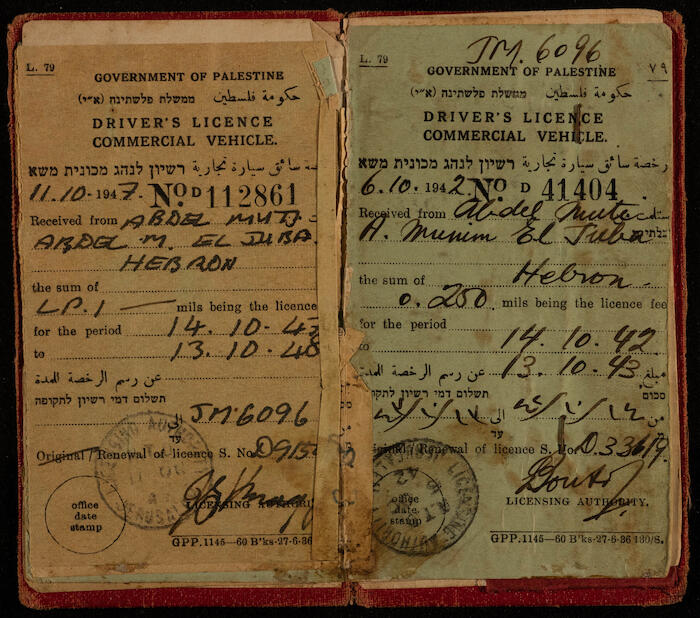 L. 79
GOVERNMENT OF PALESTINE
حكومة فلسطين ממשלת פלשתינה (א״י)
DRIVER'S LICENCE
COMMERCIAL VEHICLE.
رخصة سائق سيارة تجارية רשיון לנהג מכונית משא
11.10.1947. No. D 112861
Received from ABDEL MUTI
ABDEL M. EL JUBA
HEBRON
the sum of
LP.1 — mils being the licence
for the period 14.10.47
to 13.10.48
عن رسم الرخصة المدة
תשלום דמי רשיון לתקופה
الى JM.6096
עד
Original/Renewal of licence S. No. D915
office
date
stamp
LICENSING AUTHORITY
GPP.1145—60 B'ks-27-6-36
JM. 6096
L. 79
٧٩
GOVERNMENT OF PALESTINE
حكومة فلسطين ממשלת פלשתינה (א״י)
DRIVER'S LICENCE
COMMERCIAL VEHICLE.
رخصة سائق سيارة تجارية רשיון לנהג מכונית משא
6.10.1942. No. D 41404
Received from Abdel Muti
A. Munim El Juba
Hebron
the sum of
0.250 mils being the licence fee
for the period
14.10.42
to 13.10.43
عن رسم الرخصة المدة مبلغ
תשלום דמי רשיון לתקופה סכום
الى
עד
Original/Renewal of licence S. No. D.33619
office
date
stamp
LICENSING AUTHORITY.
GPP.1145—60 B'ks-27-6-36 180/S.